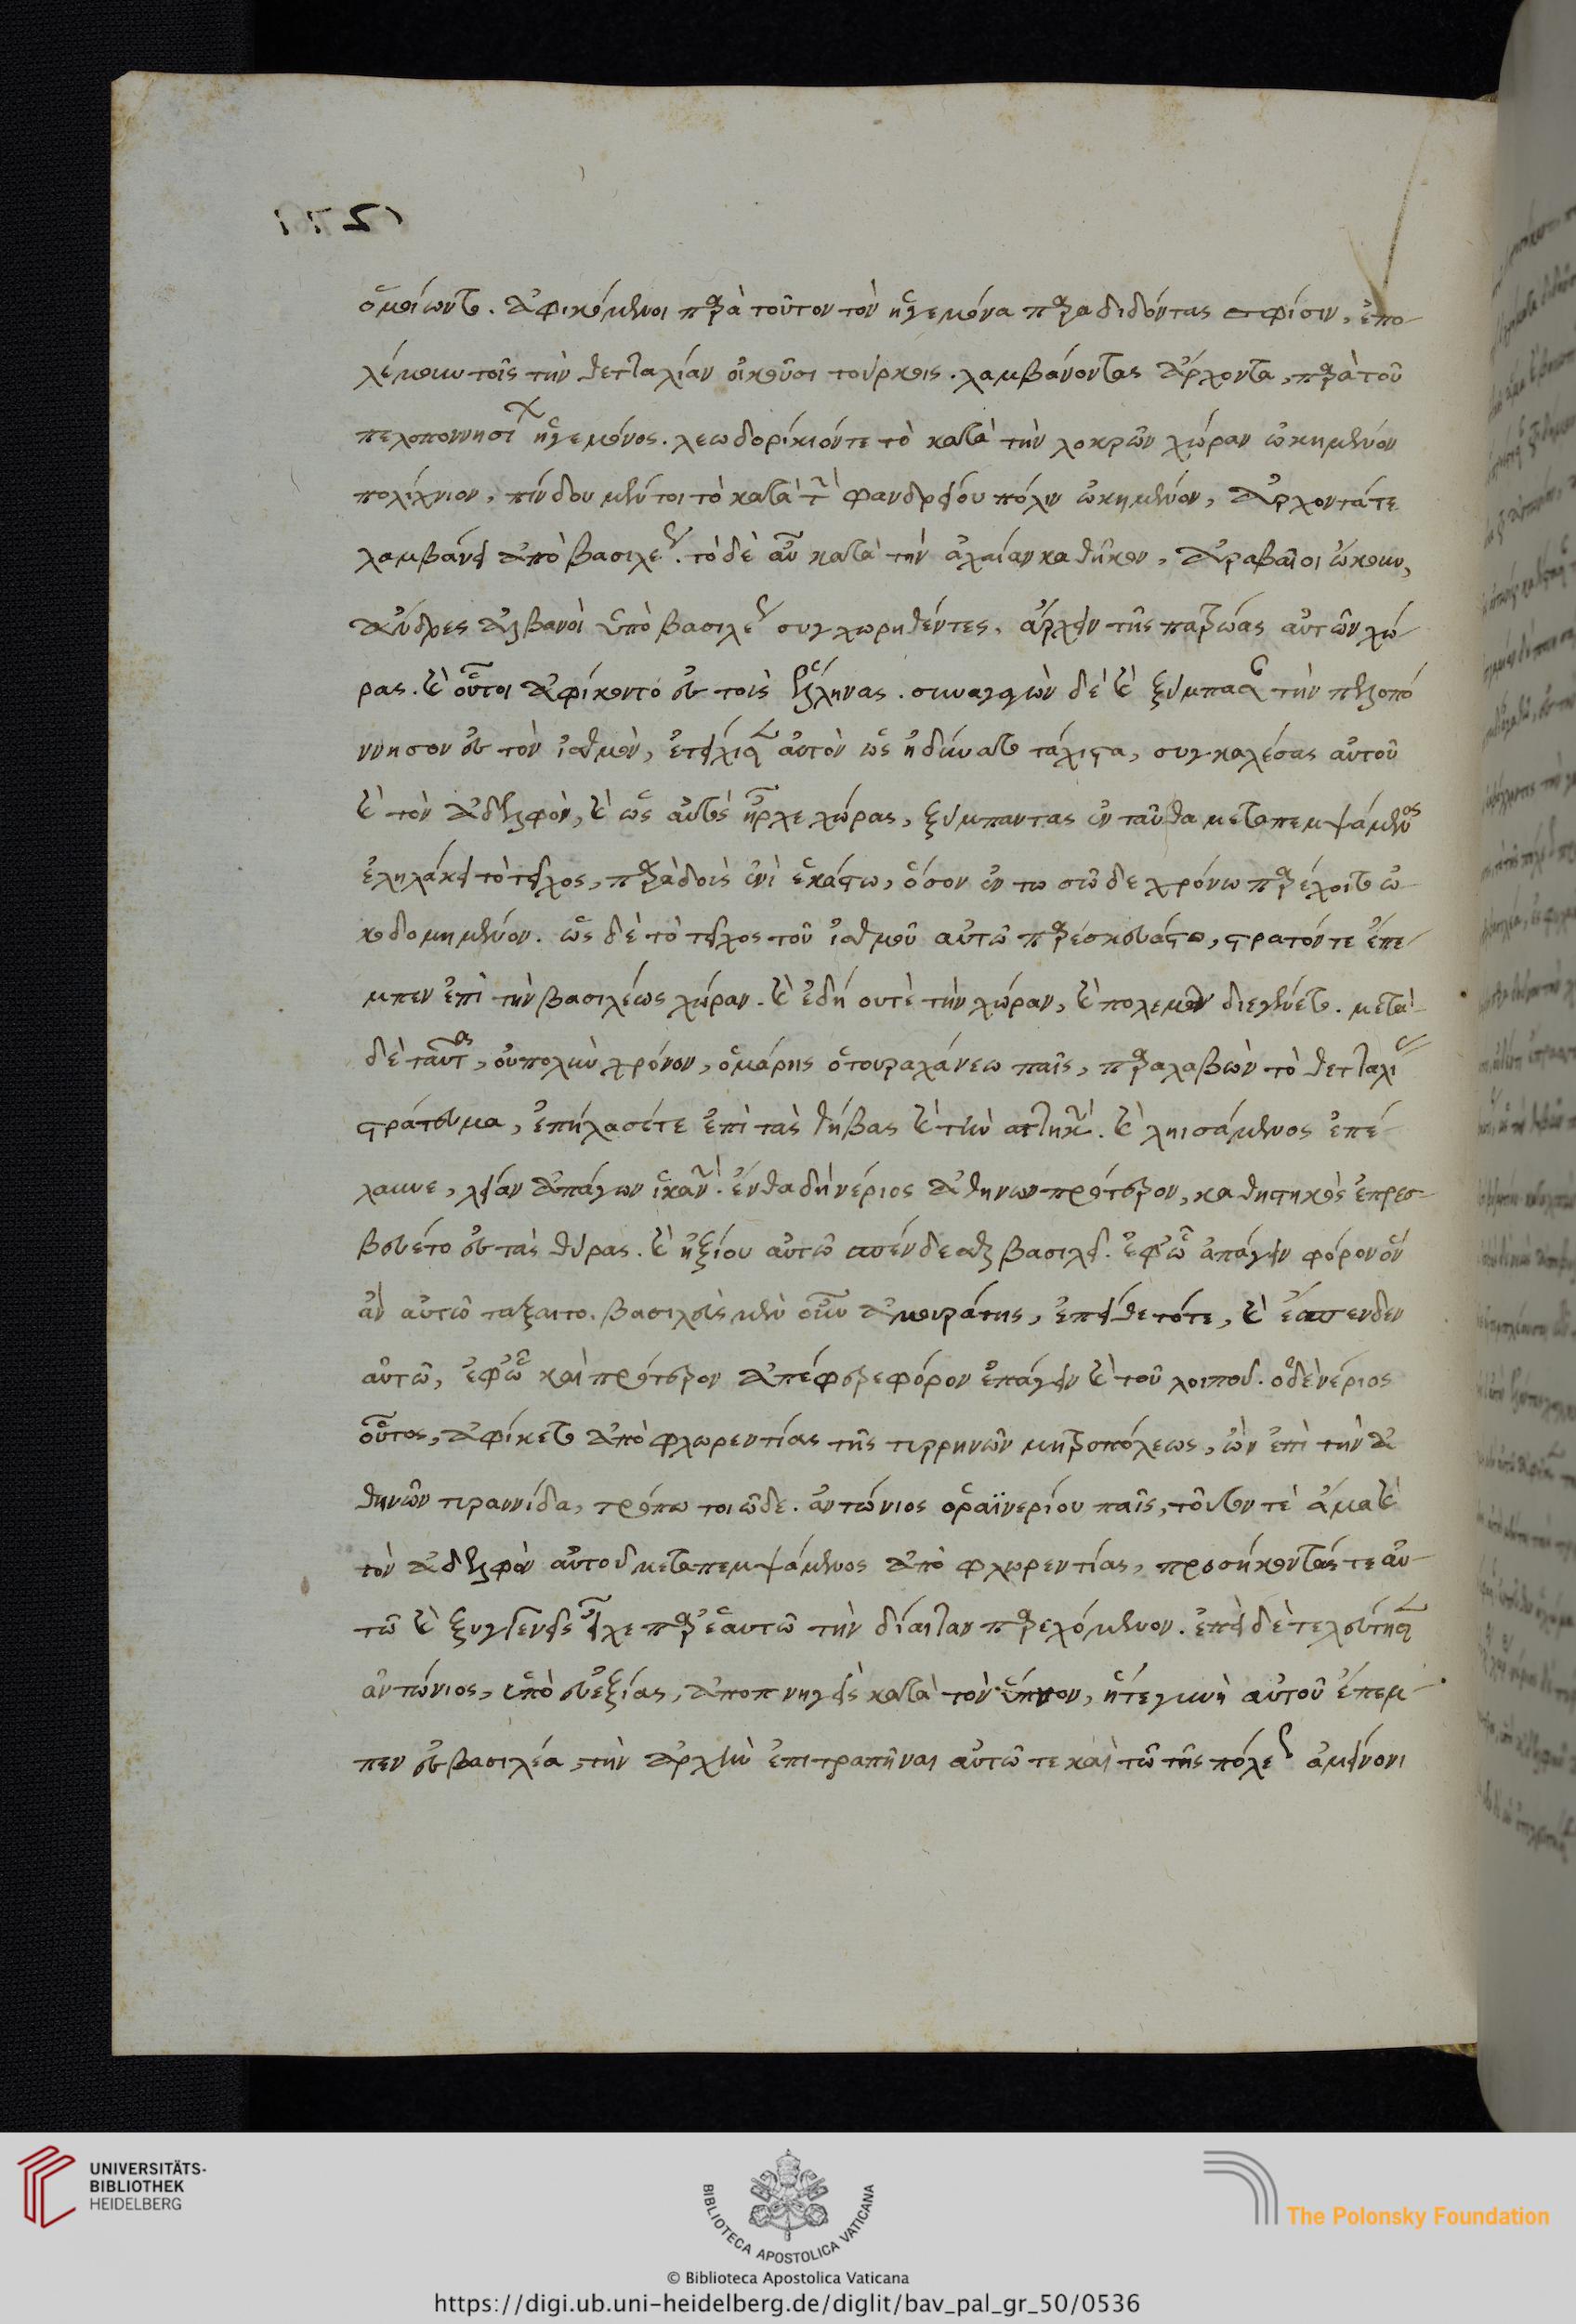 ὁμοίωντο. ἀφικόμενοι παρὰ τοῦτον τὸν ἡγεμόνα παραδιδόντας σφίσιν, ἐπο-
λέμουν τοῖς τὴν θετταλίαν οἰκοῦσι τούρκοις. λαμβάνοντας ἄρχοντα, παρὰ τοῦ
πελοποννησίων ἡγεμόνος. λεωδορίκιόντε τὸ κατὰ τὴν λοκρῶν χώραν ὠκημένον
πολίχνιον, πίνδου μέντοι τὸ κατὰ τὴν φανδρείου πόλιν ὠκημένον, ἄρχοντάτε
λαμβάνει ἀπὸ βασιλέως. τὸ δὲ αὖ κατὰ τὴν ἀχαίαν καθῆκον, ἀραβαῖοι ᾤκουν,
ἄνδρες ἀλβανοὶ ὑπὸ βασιλέως συγχωρηθέντες, ἄρχειν τῆς πατρώας αὐτῶν χώ-
ρας. καὶ οὗτοι ἀφίκοντό ἐς τοὺς ἕλληνας. συναγαγὼν δὲ καὶ ξύμπασαν τὴν πελοπό
ννησον ἐς τὸν ἰσθμὸν, ἐτείχισεν αὐτὸν ὡς ἠδύνατο τάχιστα, συγκαλέσας αὐτοῦ
καὶ τὸν ἀδελφὸν, καὶ ὡς αὐτὸς ἦρχε χώρας, ξύμπαντας ἐνταῦθα μεταπεμψάμενος
ἐληλάκει τὸ τεῖχος, παραδοὺς ἑνὶ ἑκάστω, ὅσον ἐν τω σῶδε χρόνω παρέχοιτο ὠ-
κοδομημένον. ὡς δὲ τὸ τεῖχος τοῦ ἰσθμοῦ αὐτῶ παρέσκευάστο, στρατόν τε ἔπε-
μπεν ἐπὶ τὴν βασιλέως χώραν. καὶ ἐδήουτὲ τὴν χώραν, καὶ πολεμῶν διεγένετο. μετὰ
δὲ ταῦτα, οὐπολὺν χρόνον, ὁμάρης ὁτουραχάνεω παῖς, παραλαβὼν τὸ θετταλίας
στράτευμα, ἐπήλασέτε ἐπὶ τὰς θήβας καὶ τὴν αττικὴν. καὶ ληισάμενος ἐπέ-
λαυνε, λείαν ἀπάγων ἱκανὴν. ἔνθα δὴ νέριος ἀθηνων πρότερον, καθηστηκὸς ἐπρεσ-
βεύετο ἐς τὰς θύρας. καὶ ἠξίου αὐτῶ σπένδεσθαι βασιλεῖ. ἐφ᾽ ὧ ἀπάγειν φόρον ὃν
ἂν αὐτῶ τάξαιτο. βασιλεὺς μὲν οὖν ἀμουράτης, ἐπείθετότε, καὶ ἔσπενδεν
αὐτῶ, ἐφ᾽ ὧ καὶ πρότερον ἀπέφερεφόρον ἐπάγειν καὶ τοῦ λοιποῦ. ὁδὲνέριος
οὗτος, ἀφίκετο ἀπὸ φλωρεντίας τῆς τυρρηνῶν μητροπόλεως, ὢν ἐπὶ τὴν ἀ
θηνῶν τυραννίδα, τρόπω τοιῶδε. ἀντώνιος ὁραϊνερίου παῖς, τοῦτον τὲ ἅμα καὶ
τὸν ἀδελφὸν αὐτοῦ μεταπεμψάμενος ἀπὸ φλωρεντίας, προσήκοντάς τε αὐ-
τῶ καὶ ξυγγενεῖς εἶχε παρ᾽ ἑαυτῶ τὴν δίαιταν παρεχόμενον. ἐπεὶ δὲ τελεύτησεν
ἀντώνιος, ὑπὸ εὐεξίας, ἀποπνηγεὶς κατὰ τὸν ὕπνον, ἥτεγυνὴ αὐτοῦ ἔπεμ-
πεν ἐς βασιλέα, τὴν ἀρχὴν ἐπιτραπῆναι αὐτῶ τε καὶ τῶ τῆς πόλεως ἀμείνονι
UNIVERSITÄTS-
BIBLIOTHEK
HEIDELBERG
BIBLIOTECA APOSTOLICA VATICANA
The Polonsky Foundation
© Biblioteca Apostolica Vaticana
https://digi.ub.uni-heidelberg.de/diglit/bav_pal_gr_50/0536